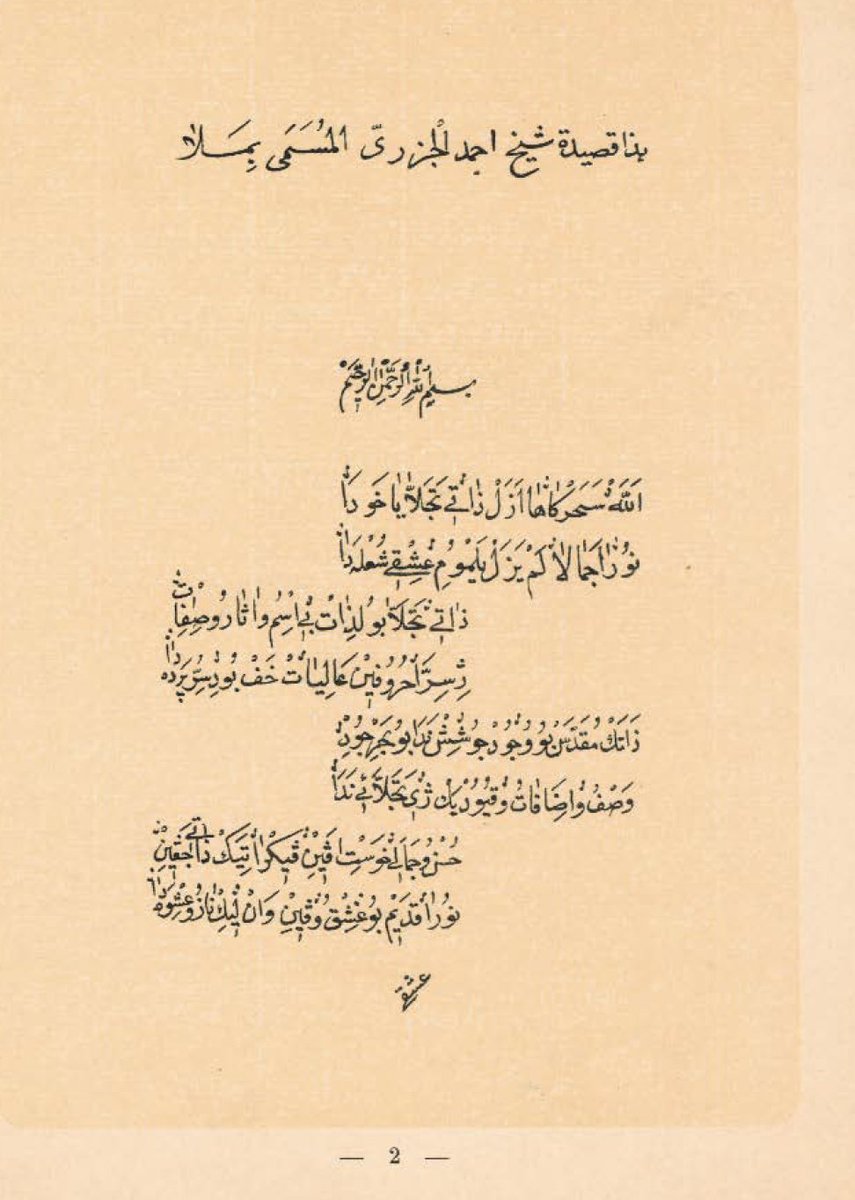 هذا قصيدة شيخ احمد الجزرىّ المُسَمَى بِمَلا
بسم الله الرحمن الرحيم
اَللّٰه سَحَرْكَاها اَزَلْ ذاتَى تَجَلّا يا خَو دَا
نُورَا جَمالا لَمْ يَزَلْ يَلْمُومِ عِشْقِى شُعْلَه دَا
ذاتَى تَجَلّا بو لِذات بى اِسْمُ واثارُ وصِفات
رِسِرّا حُرُوفِينْ عَالِيات خَفْ بُو دِسِرِّ پَرْدَه دَا
ذَاتَكْ مُقَدَّسْ بُو وُجُودْ جُوشِشْ نَدَا بُو بَحْرِ جُودْ
وَصْفُ واِضَافاتُ وقُيُودْ يَكْ ژِىْ تَجَلّائى نَدَا
حُسْنُ وجَمالَى خَوسِت اڤِينْ ڤيكرا تِيكْ ذاتَى
نُورا قَدِيمْ بُو عِشْق وُڤِينْ وَانْ لِيكْ نازُ وعِشْوَه دَا
عشقى
— 2 —